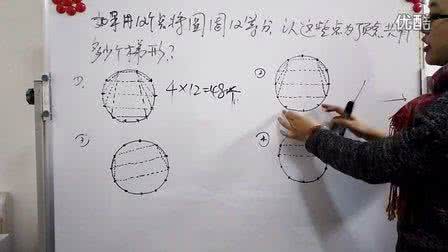 如果用12个点将圆周12等分,以这些点为顶点共有
多少个梯形?
① 4×12=48个 ②
③ ④
YouTube